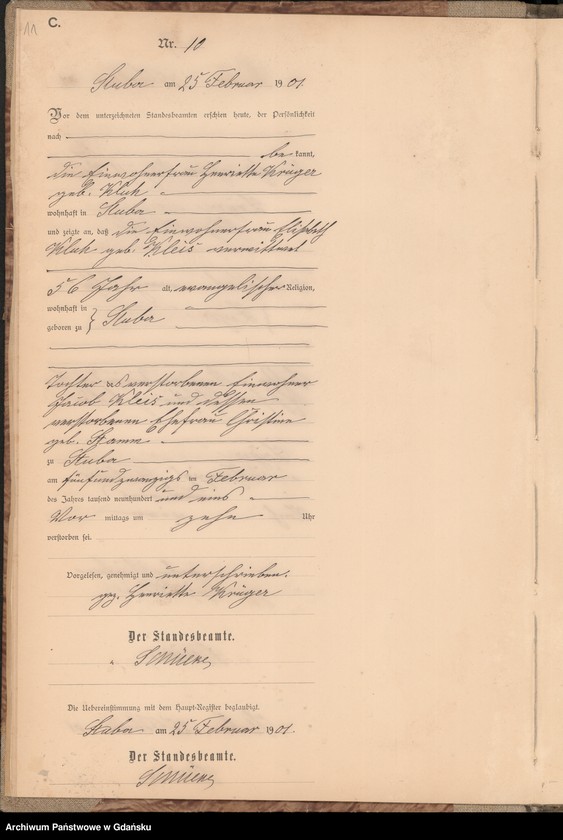 11
C.
Nr. 10
Stuba am 25 Februar 1901
Vor dem unterzeichneten Standesbeamten erschien heute, der Persönlichkeit
nach
be kannt,
die Einwohnerfrau Henriette Krüger
geb. Kluk
wohnhaft in Stuba
und zeigte an, daß die Einwohnerfrau Elisabeth
Kluk geb. Kleis verwittwet
56 Jahr alt, evangelischer Religion,
wohnhaft in
geboren zu } Stuba
Tochter des verstorbenen Einwohner
Jacob Kleis und dessen
verstorbenen Ehefrau Christine
geb. Stamm
zu Stuba
am fünfundzwanzigsten Februar
des Jahres tausend neunhundert und eins
Vor mittags um zehn Uhr
verstorben sei.
Vorgelesen, genehmigt und unterschrieben.
gez. Henriette Krüger
Der Standesbeamte.
Die Uebereinstimmung mit dem Haupt-Register beglaubigt.
Stuba am 25 Februar 1901.
Der Standesbeamte.
Archiwum Państwowe w Gdańsku